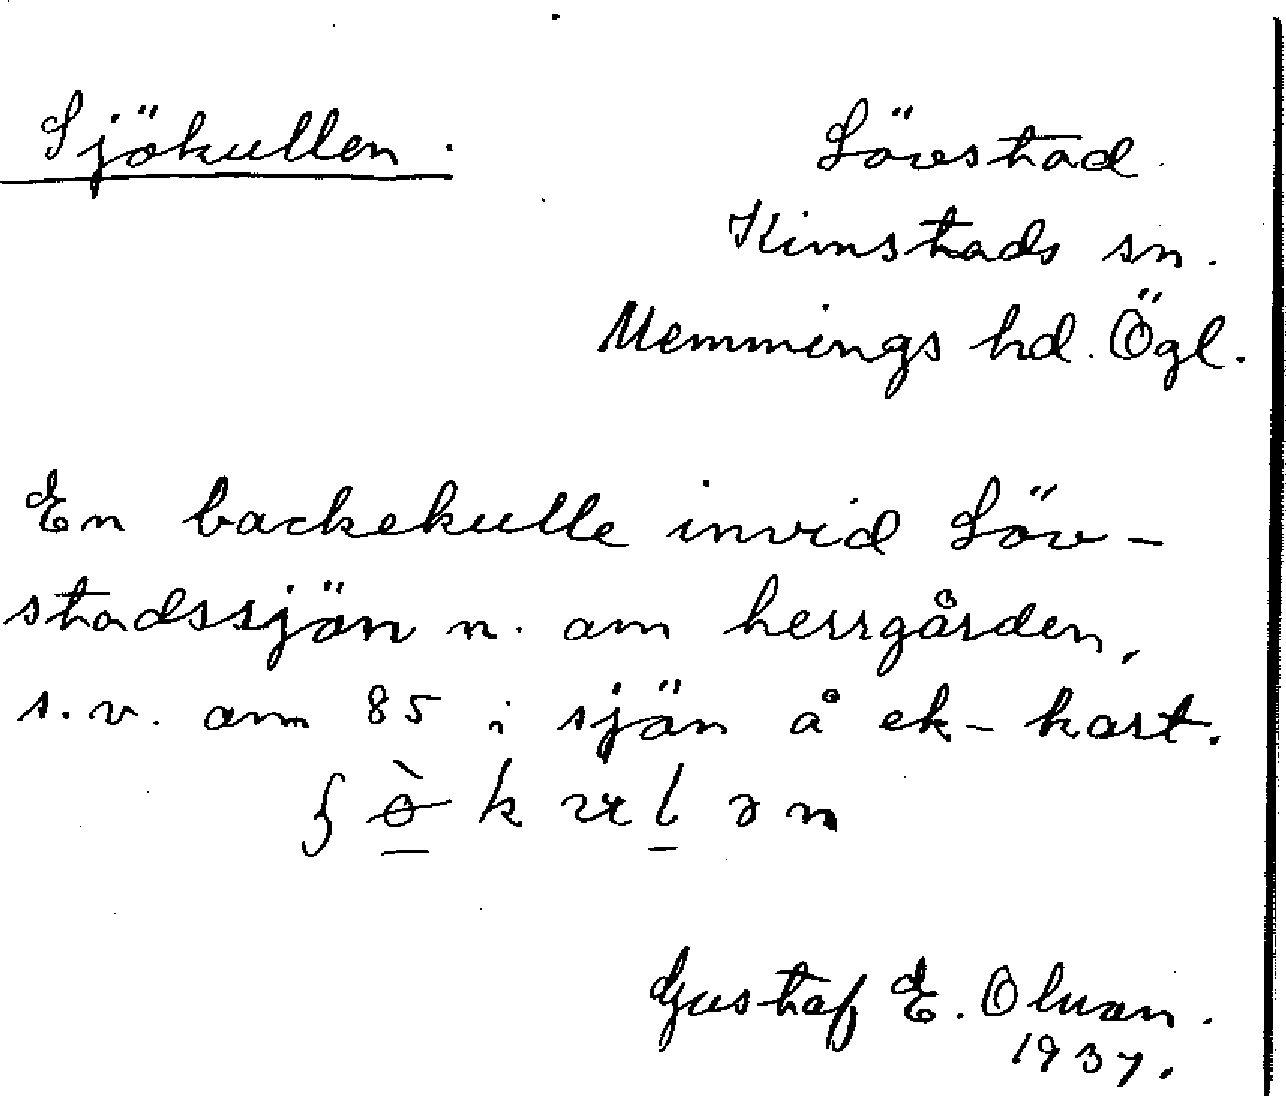 Sjökullen.
Lövstad.
Kimstads sn.
Memmings hd. Ögl.
En backekulle invid Löv-
stadssjön n. om herrgården,
s.v. om 85 i sjön å ek-kart.
Gustaf E.
1937.